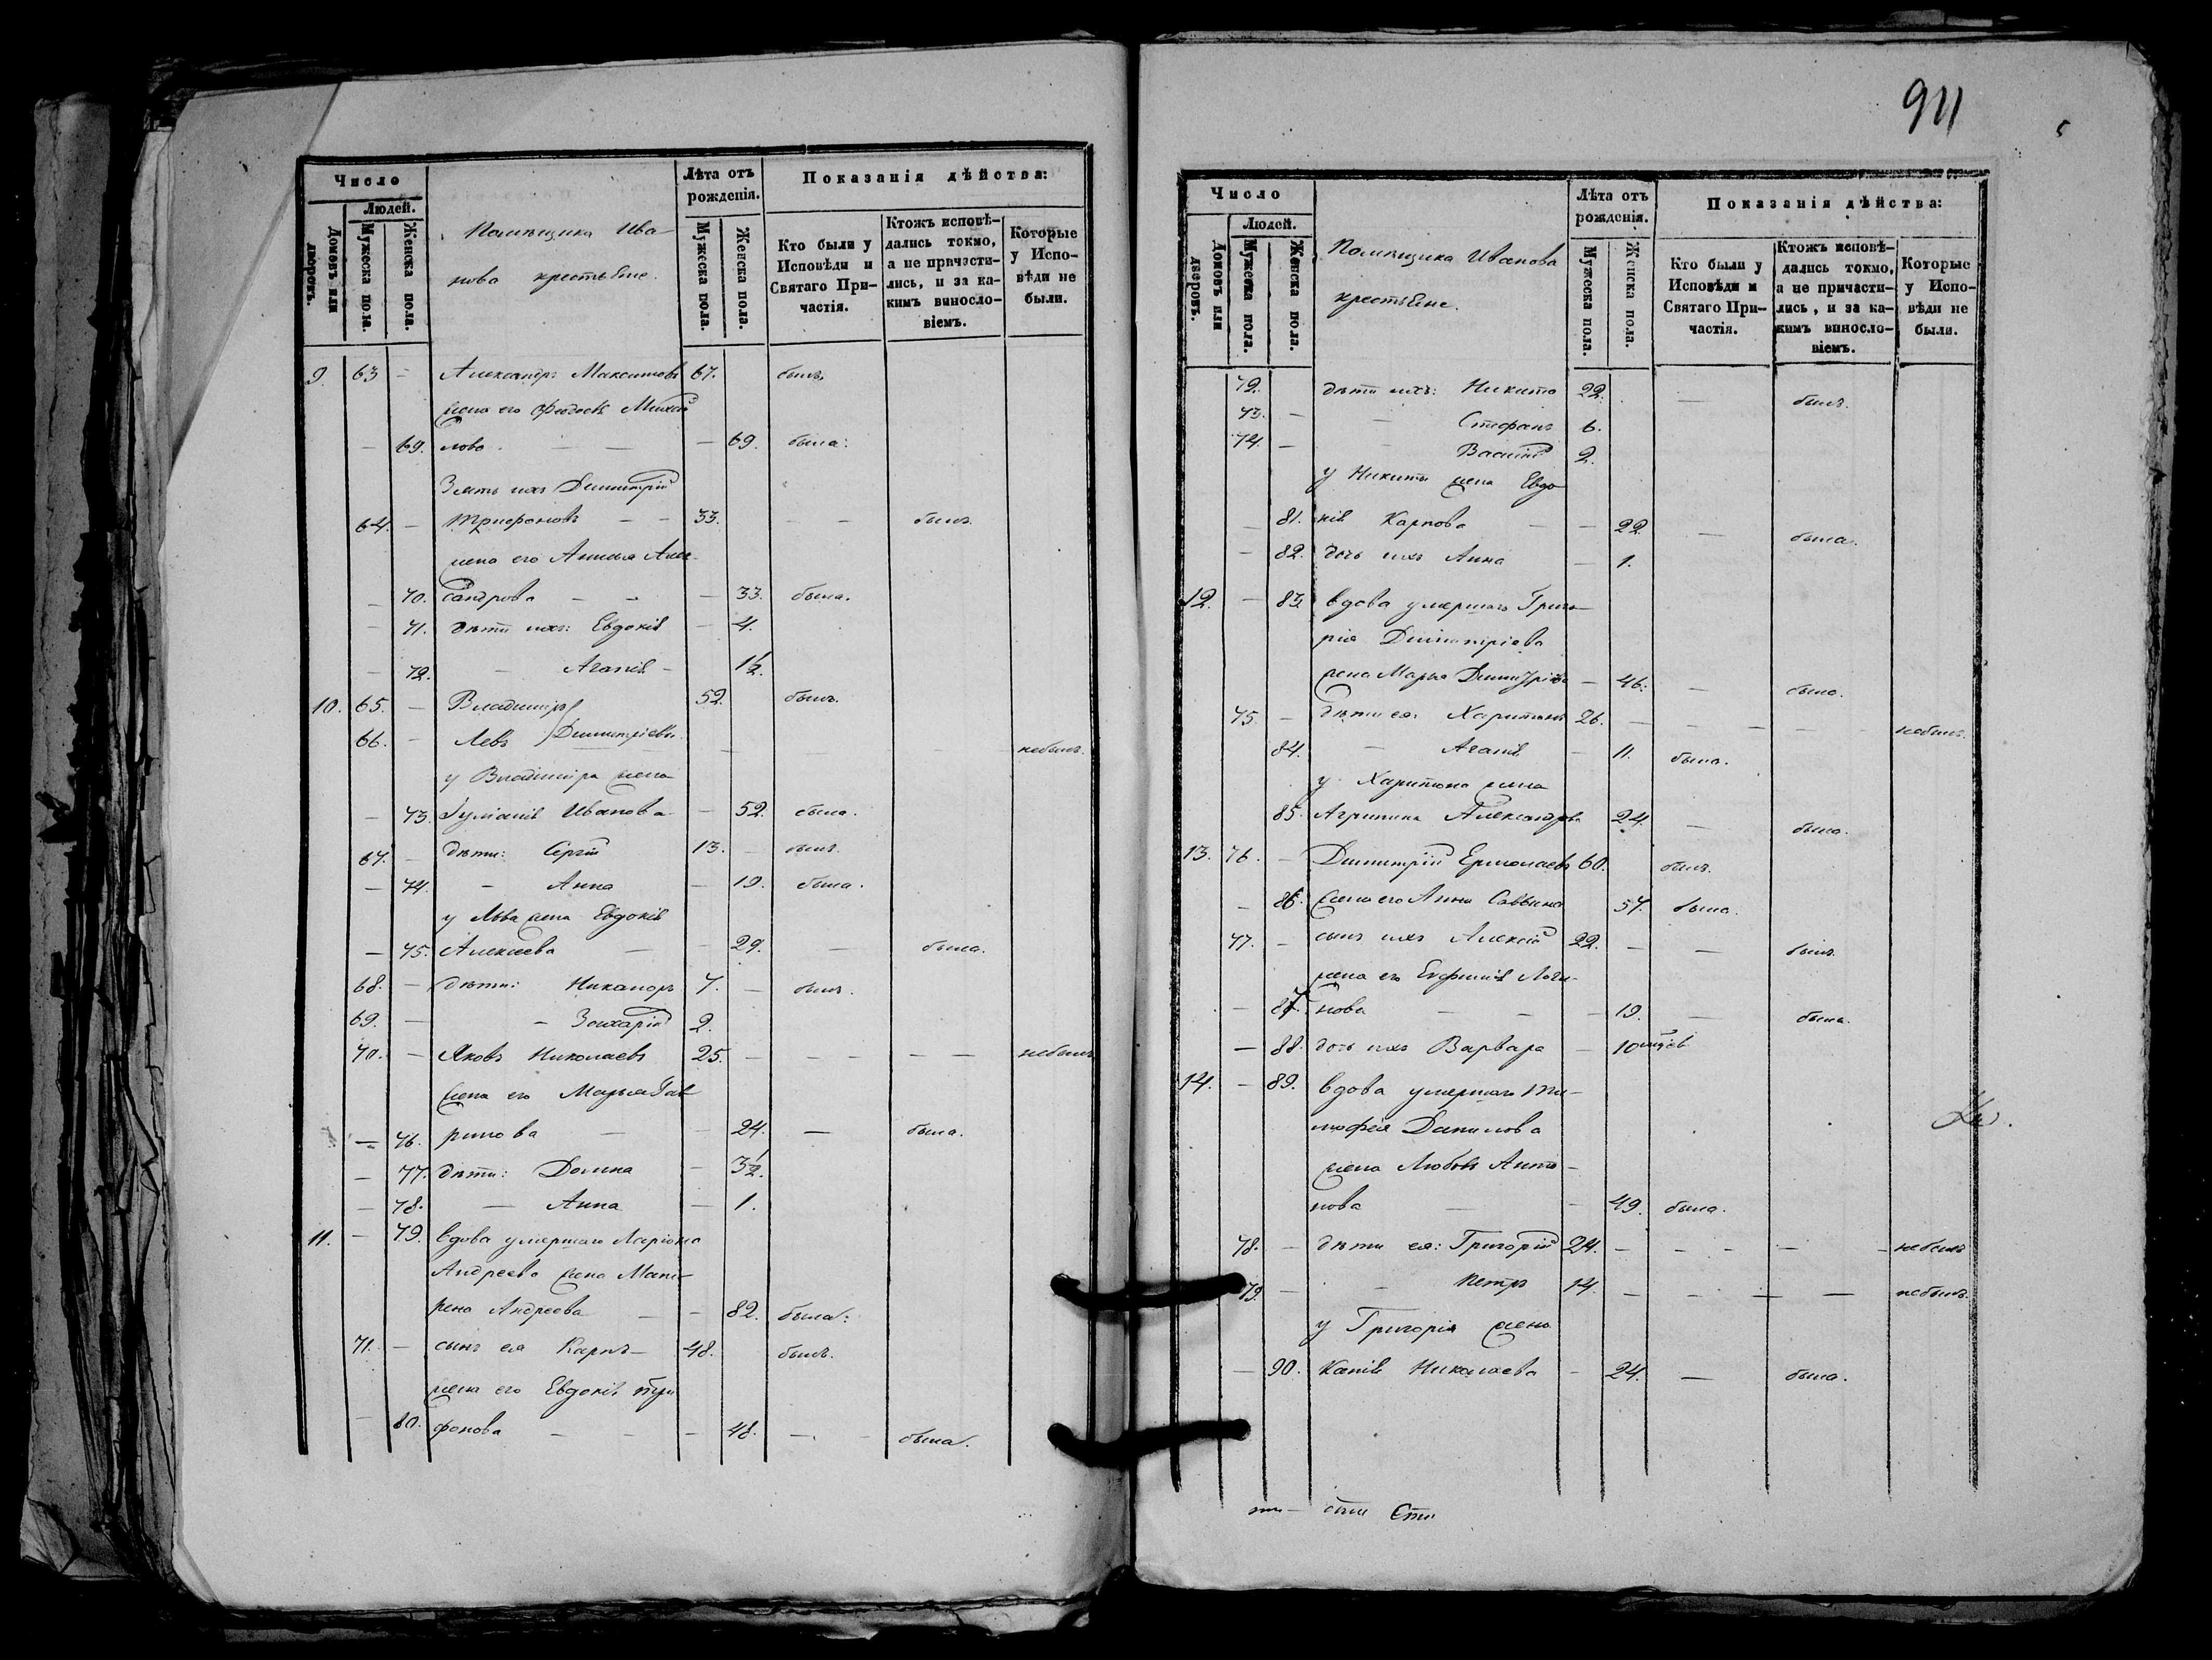 Число
Людей.
Домовъ или дворовъ.
Мужеска пола.
Женска пола.
Помѣщика Ива-
нова крестьяне.
Лѣта отъ рожденія.
Мужеска пола.
Женска пола.
Показанія дѣйства:
Кто были у Исповѣди и Святаго Причастія.
Ктожъ исповѣдались токмо, а не причастились, и за какимъ винословіемъ.
Которые у Исповѣди не были.
9. 63 – Александръ Максимовъ 67. былъ
жена его Ѳеодосія Михай
– 69. лова – – – 69. была:
Зять ихъ Димитрій
64. – Трифоновъ – – 33. – – былъ.
жена его Аннья Алек-
– 70. сандрова – – – 33. была.
– 71. дѣти ихъ: Евдокія – 4.
– 72. – Агапія – 1½.
10. 65. – Владиміръ 52. былъ.
66. – Левъ Димитріевы. – – – небылъ.
у Владиміра жена
– 73. Іуліанія Иванова – 52. была.
67. – дѣти: Сергій 13. – былъ.
– 74. – Анна – 19. была.
у Льва жена Евдокія
– 75. Алексѣева – – 29. – была.
68. – дѣти: Никаноръ 7. – былъ.
69. – – Захарій 2.
70. – Яковъ Николаевъ 25. – – – – – небылъ
жена его Марья Гав
– 76. рилова – – 24. – была.
– 77. дѣти: Домна – 3½.
– 78. – Анна – 1.
11. – 79. вдова умершаго Ларіона
Андреева жена Мат-
рена Андреева – – 82. была:
71. – сынъ ея Карпъ – 48. былъ.
жена его Евдокія Три
– 80. фонова – – – 48. – – была.
911
Число
Людей.
Домовъ или дворовъ.
Мужеска пола.
Женска пола.
Помѣщика Иванова
крестьяне.
Лѣта отъ рожденія.
Мужеска пола.
Женска пола.
Показанія дѣйства:
Кто были у Исповѣди и Святаго Причастія.
Ктожъ исповѣдались токмо, а не причастились, и за какимъ винословіемъ.
Которые у Исповѣди не были.
72. дѣти ихъ: Никита 22. – былъ.
73. – – Стефанъ 6.
74. – Василій 2.
у Никиты жена Евдо
– 81. кія Карпова – – 22. – была.
– 82. дочь ихъ Анна – 1.
12. – 83. вдова умершаго Григо-
рія Димитріева
жена Марья Димитріева – 46. – была.
75. – дѣти ея: Харитонъ 26. – – – – небылъ.
84. – Агапія – 11. была.
у Харитона жена
85. Агрипина Александрова 24. – была.
13. 76. – Димитрій Ермолаевъ 60. былъ.
– 86. жена его Анна Саввина 57. была.
77. – сынъ ихъ Алексій 22. – – былъ.
жена его Евфимія Логи-
– 87. нова – – – 19. – была.
– 88. дочь ихъ Варвара – 10 мцѣв
14. – 89. вдова умершаго Ти-
мофея Данилова
жена Любовь Анто-
нова – – 49. была.
78. – дѣти ея: Григорій 24. – – – – – небылъ
79. – – Петръ 14. – – – – небылъ.
у Григорія жена
– 90. Капія Николаева – 24. – была.